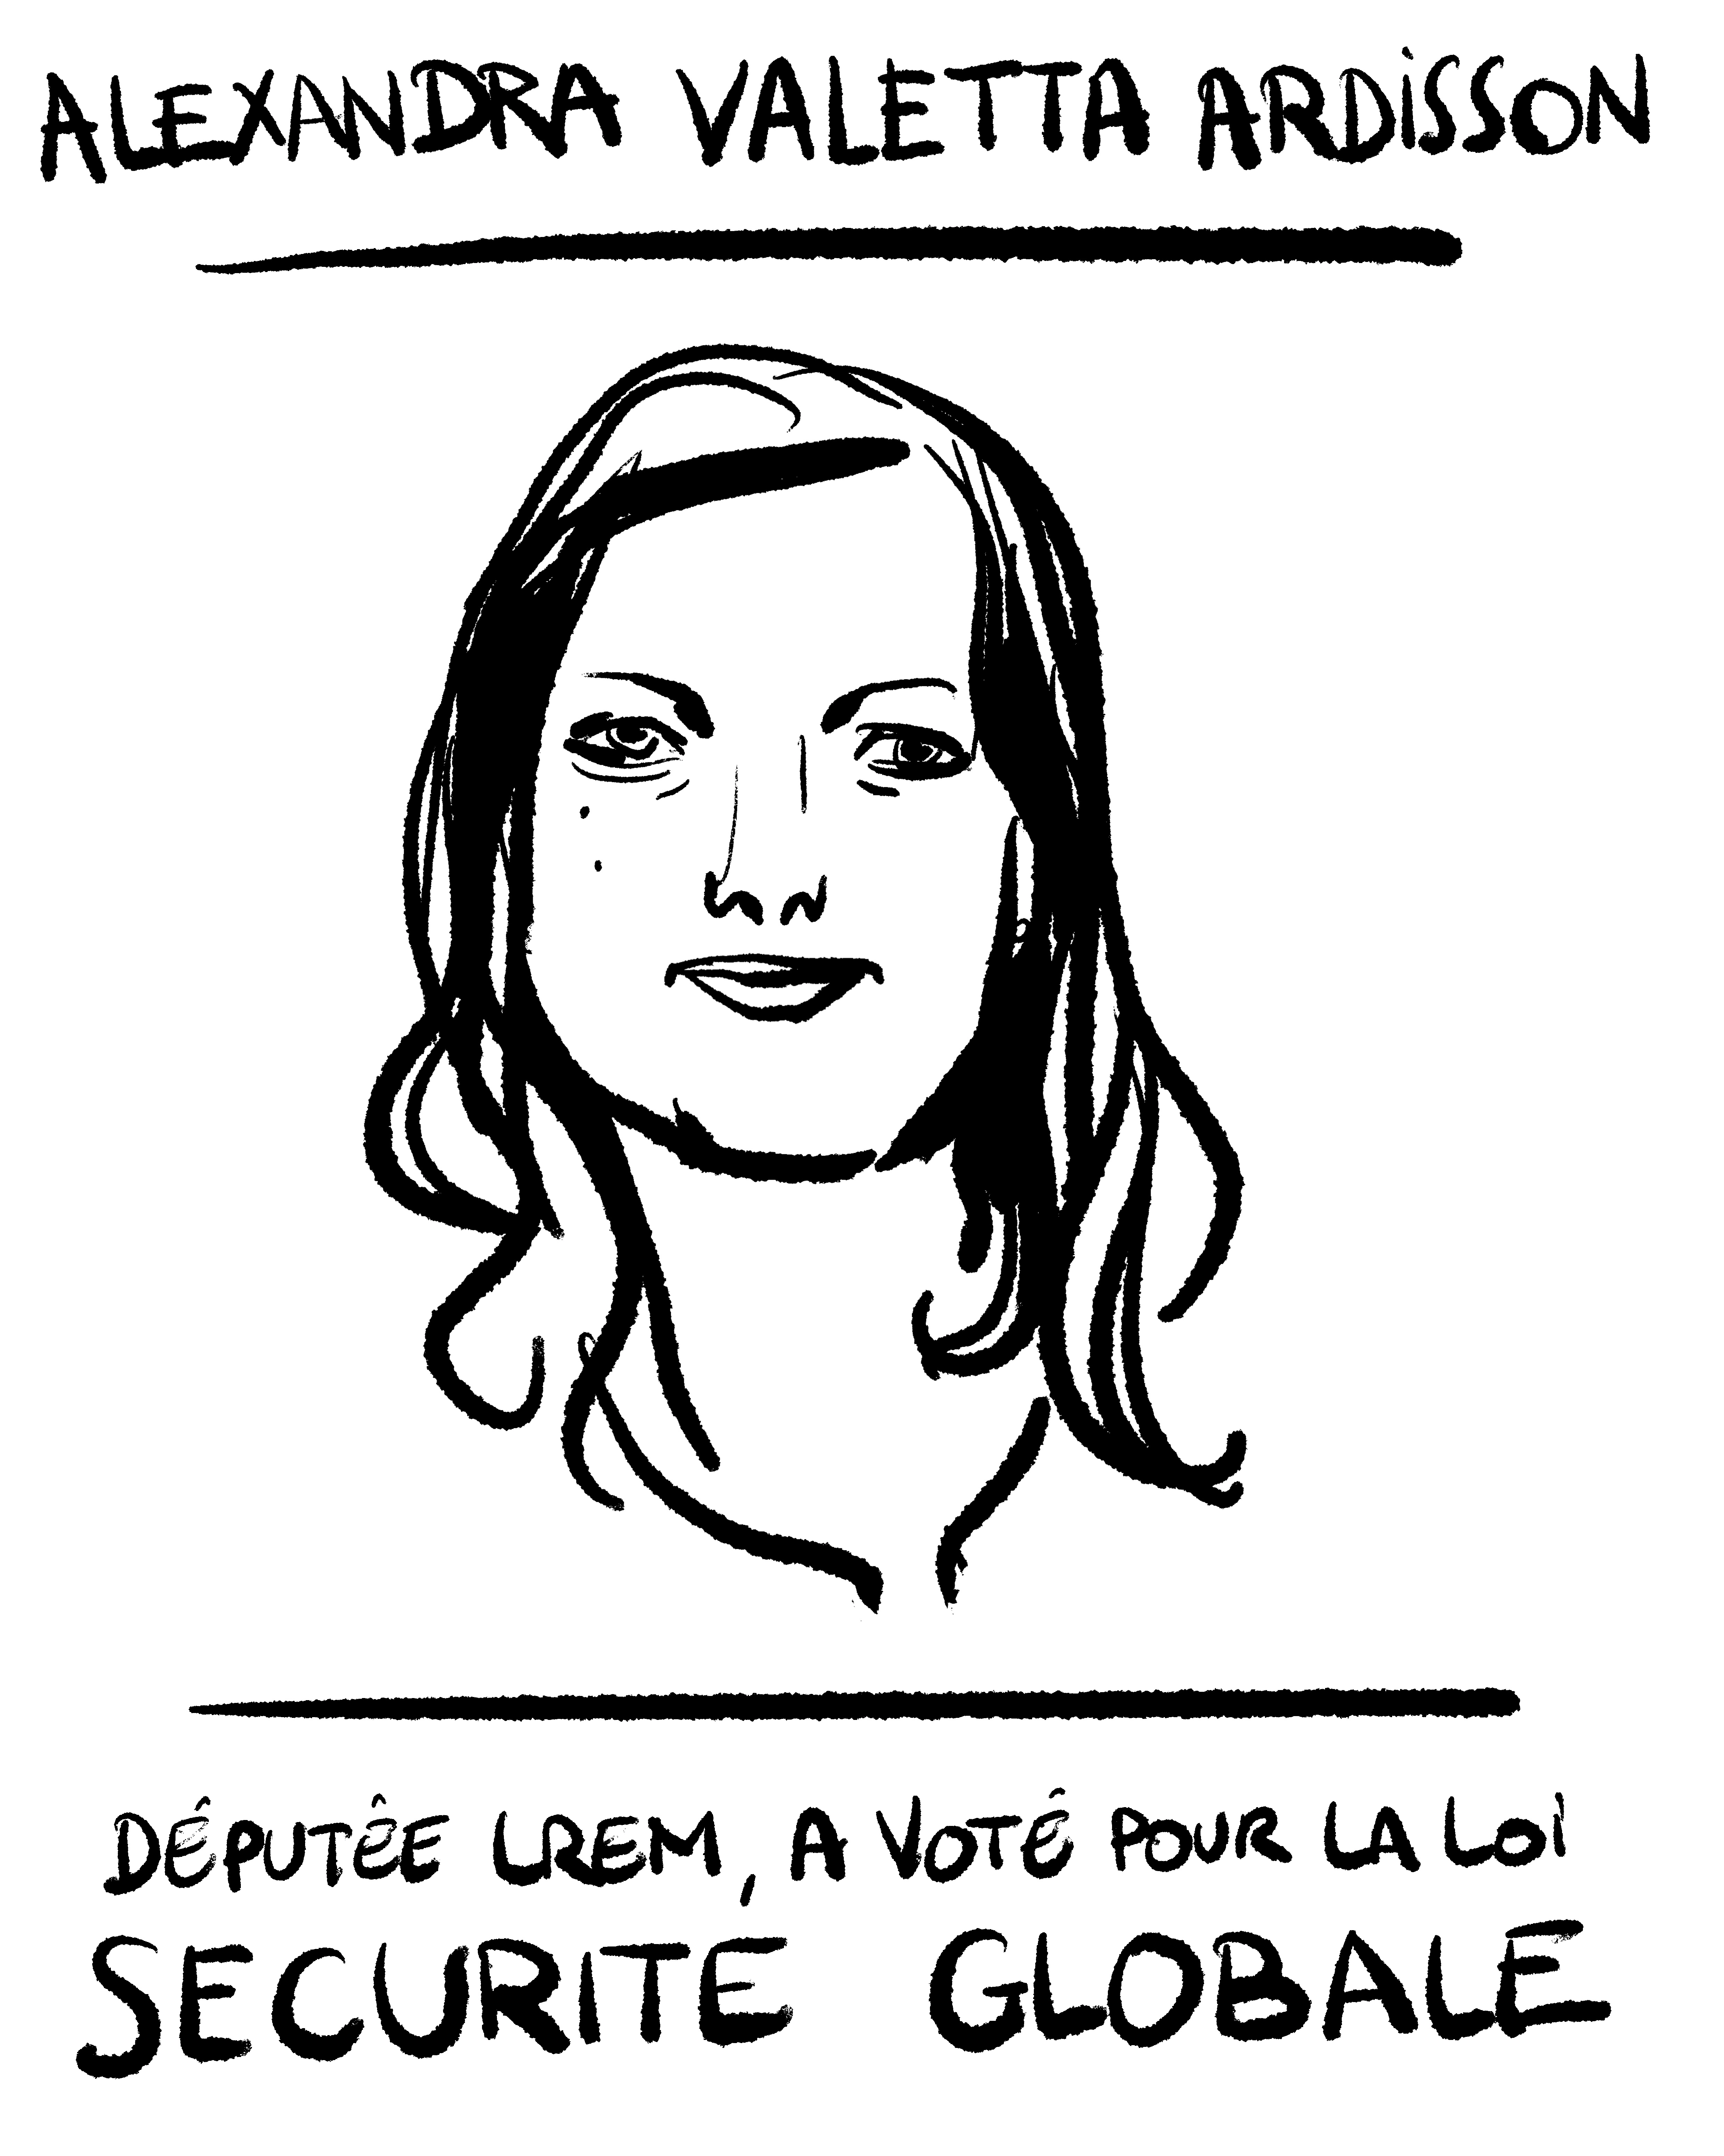 ALEXANDRA VALETTA ARDiSSON
DÉPUTÊE LREM, A VOTÉ POUR LA LOi
SECURITÉ GLOBALE